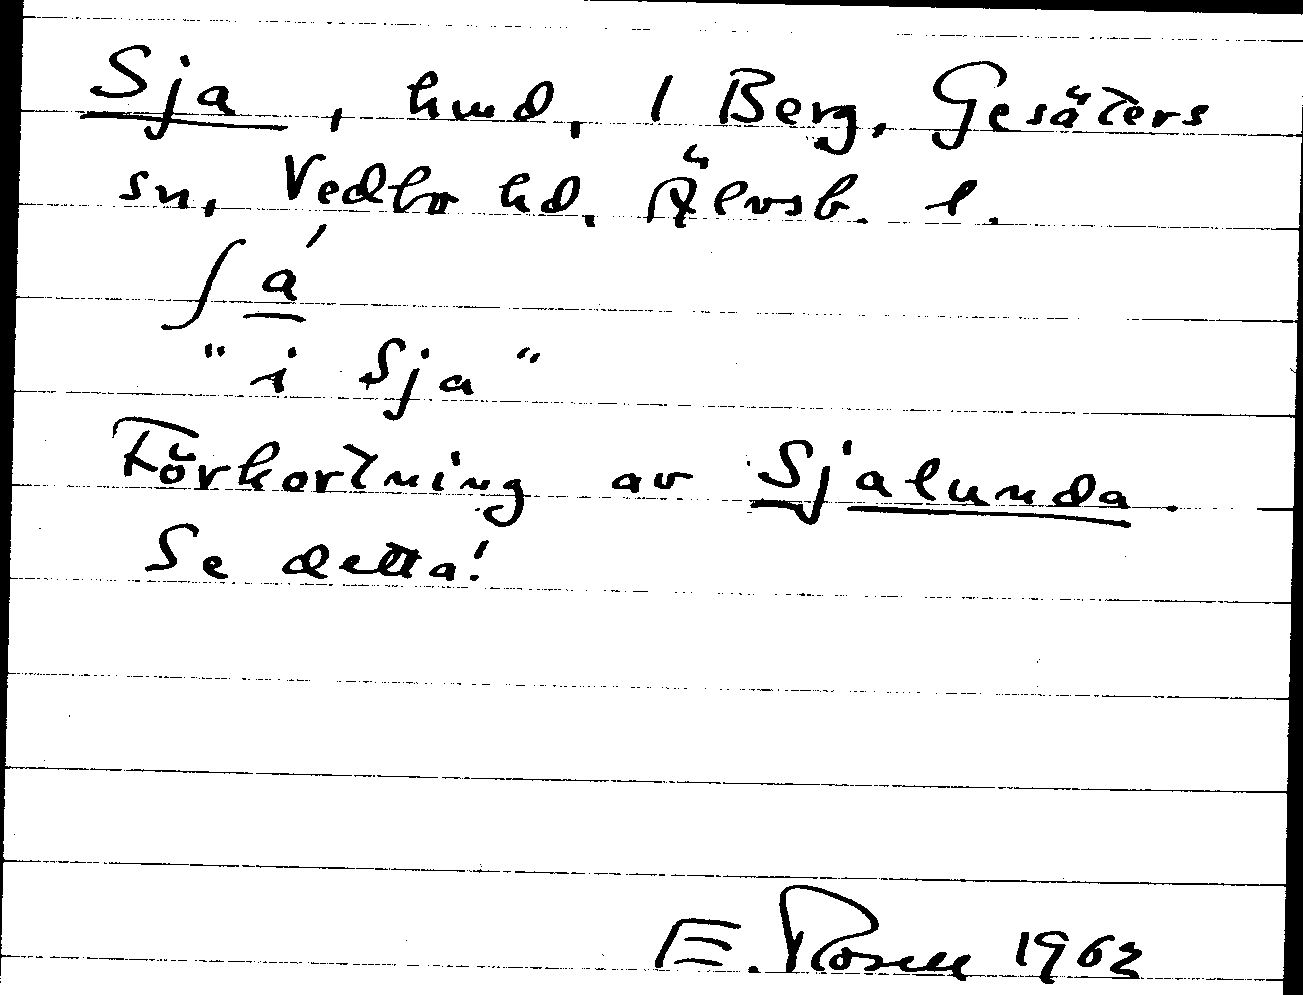 Sja, hmd, 1 Berg, Gesäters
sn, Vedbo hd. Älvsb. l.
ʃa̲´
"i Sja"
Förkortning av Sjalunda.
Se detta!
E. Rosell 1962